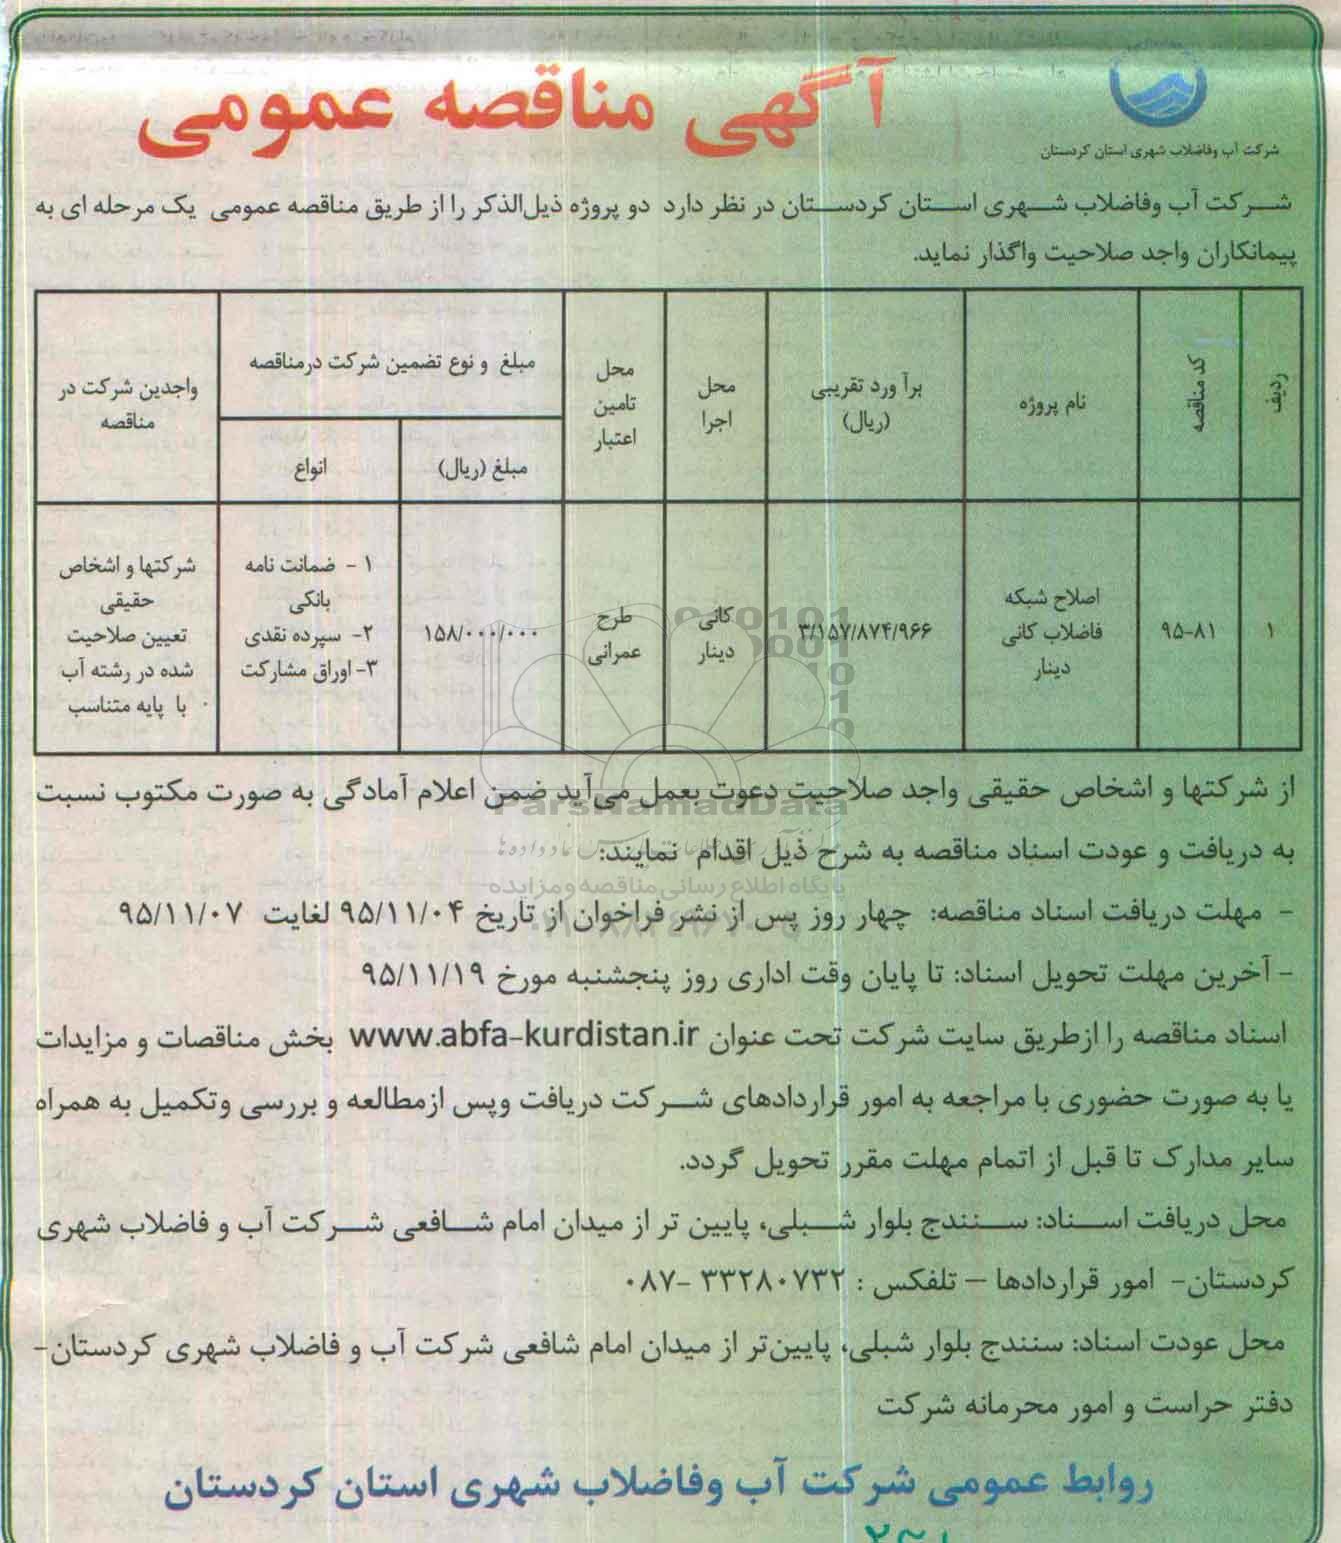 آگهی مناقصه عمومی
شرکت آب وفاضلاب شهری استان کردستان
شرکت آب وفاضلاب شهری استان کردستان در نظر دارد دو پروژه ذیل‌الذکر را از طریق مناقصه عمومی یک مرحله ای به
پیمانکاران واجد صلاحیت واگذار نماید.
ردیف
کد مناقصه
نام پروژه
برآ ورد تقریبی
(ریال)
محل
اجرا
محل
تامین
اعتبار
مبلغ و نوع تضمین شرکت درمناقصه
مبلغ (ریال)
انواع
واجدین شرکت در
مناقصه
۱
۹۵-۸۱
اصلاح شبکه
فاضلاب کانی
دینار
۳/۱۵۷/۸۷۴/۹۶۶
کانی
دینار
طرح
عمرانی
۱۵۸/۰۰۰/۰۰۰
۱ - ضمانت نامه
بانکی
۲- سپرده نقدی
۳- اوراق مشارکت
شرکتها و اشخاص
حقیقی
تعیین صلاحیت
شده در رشته آب
با پایه متناسب
از شرکتها و اشخاص حقیقی واجد صلاحیت دعوت بعمل می‌آید ضمن اعلام آمادگی به صورت مکتوب نسبت
ParsNamadData
به دریافت و عودت اسناد مناقصه به شرح ذیل اقدام نمایند:
پایگاه اطلاع رسانی مناقصه ومزایده
- مهلت دریافت اسناد مناقصه: چهار روز پس از نشر فراخوان از تاریخ ۹۵/۱۱/۰۴ لغایت ۹۵/۱۱/۰۷
- آخرین مهلت تحویل اسناد: تا پایان وقت اداری روز پنجشنبه مورخ ۹۵/۱۱/۱۹
اسناد مناقصه را ازطریق سایت شرکت تحت عنوان www.abfa-kurdistan.ir بخش مناقصات و مزایدات
یا به صورت حضوری با مراجعه به امور قراردادهای شرکت دریافت وپس ازمطالعه و بررسی وتکمیل به همراه
سایر مدارک تا قبل از اتمام مهلت مقرر تحویل گردد.
محل دریافت اسناد: سنندج بلوار شبلی، پایین تر از میدان امام شافعی شرکت آب و فاضلاب شهری
کردستان- امور قراردادها – تلفکس : ۳۳۲۸۰۷۳۲ -۰۸۷
محل عودت اسناد: سنندج بلوار شبلی، پایین‌تر از میدان امام شافعی شرکت آب و فاضلاب شهری کردستان-
دفتر حراست و امور محرمانه شرکت
روابط عمومی شرکت آب وفاضلاب شهری استان کردستان